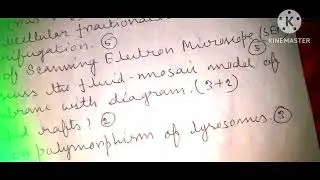 KINEMASTER
cellular fractionation
rifugation. (5)
of Scanning Elutron Microscope (SEM
(5)
uss the fluid-mosaic model of
brane with diagram. (3+2)
d rafts? (2)
polymorphism of lysosomes. (3)